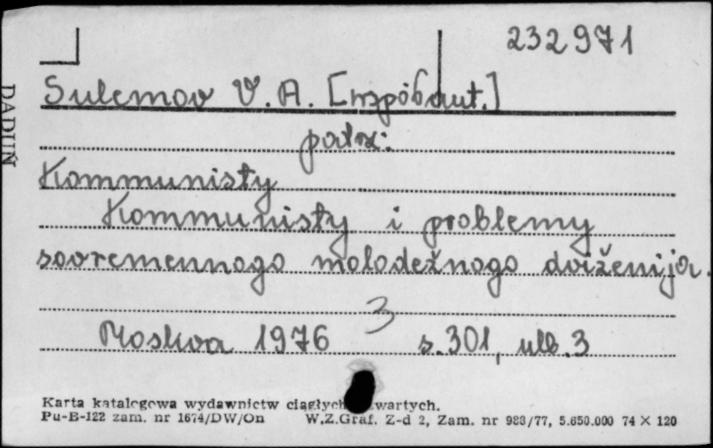 232971
Sulemov V. A. [współaut.]
patrz:
Kommunisty
Kommunisty i problemy
sovremennogo molodežnogo dviženija.
3
Moskva 1976 s. 301, nlb. 3
DADUŃ
Karta katalogowa wydawnictw ciągłych wartych.
Pu-B-122 zam. nr 1674/DW/On W.Z.Graf. Z-d 2, Zam. nr 983/77, 5.650.000 74 × 120